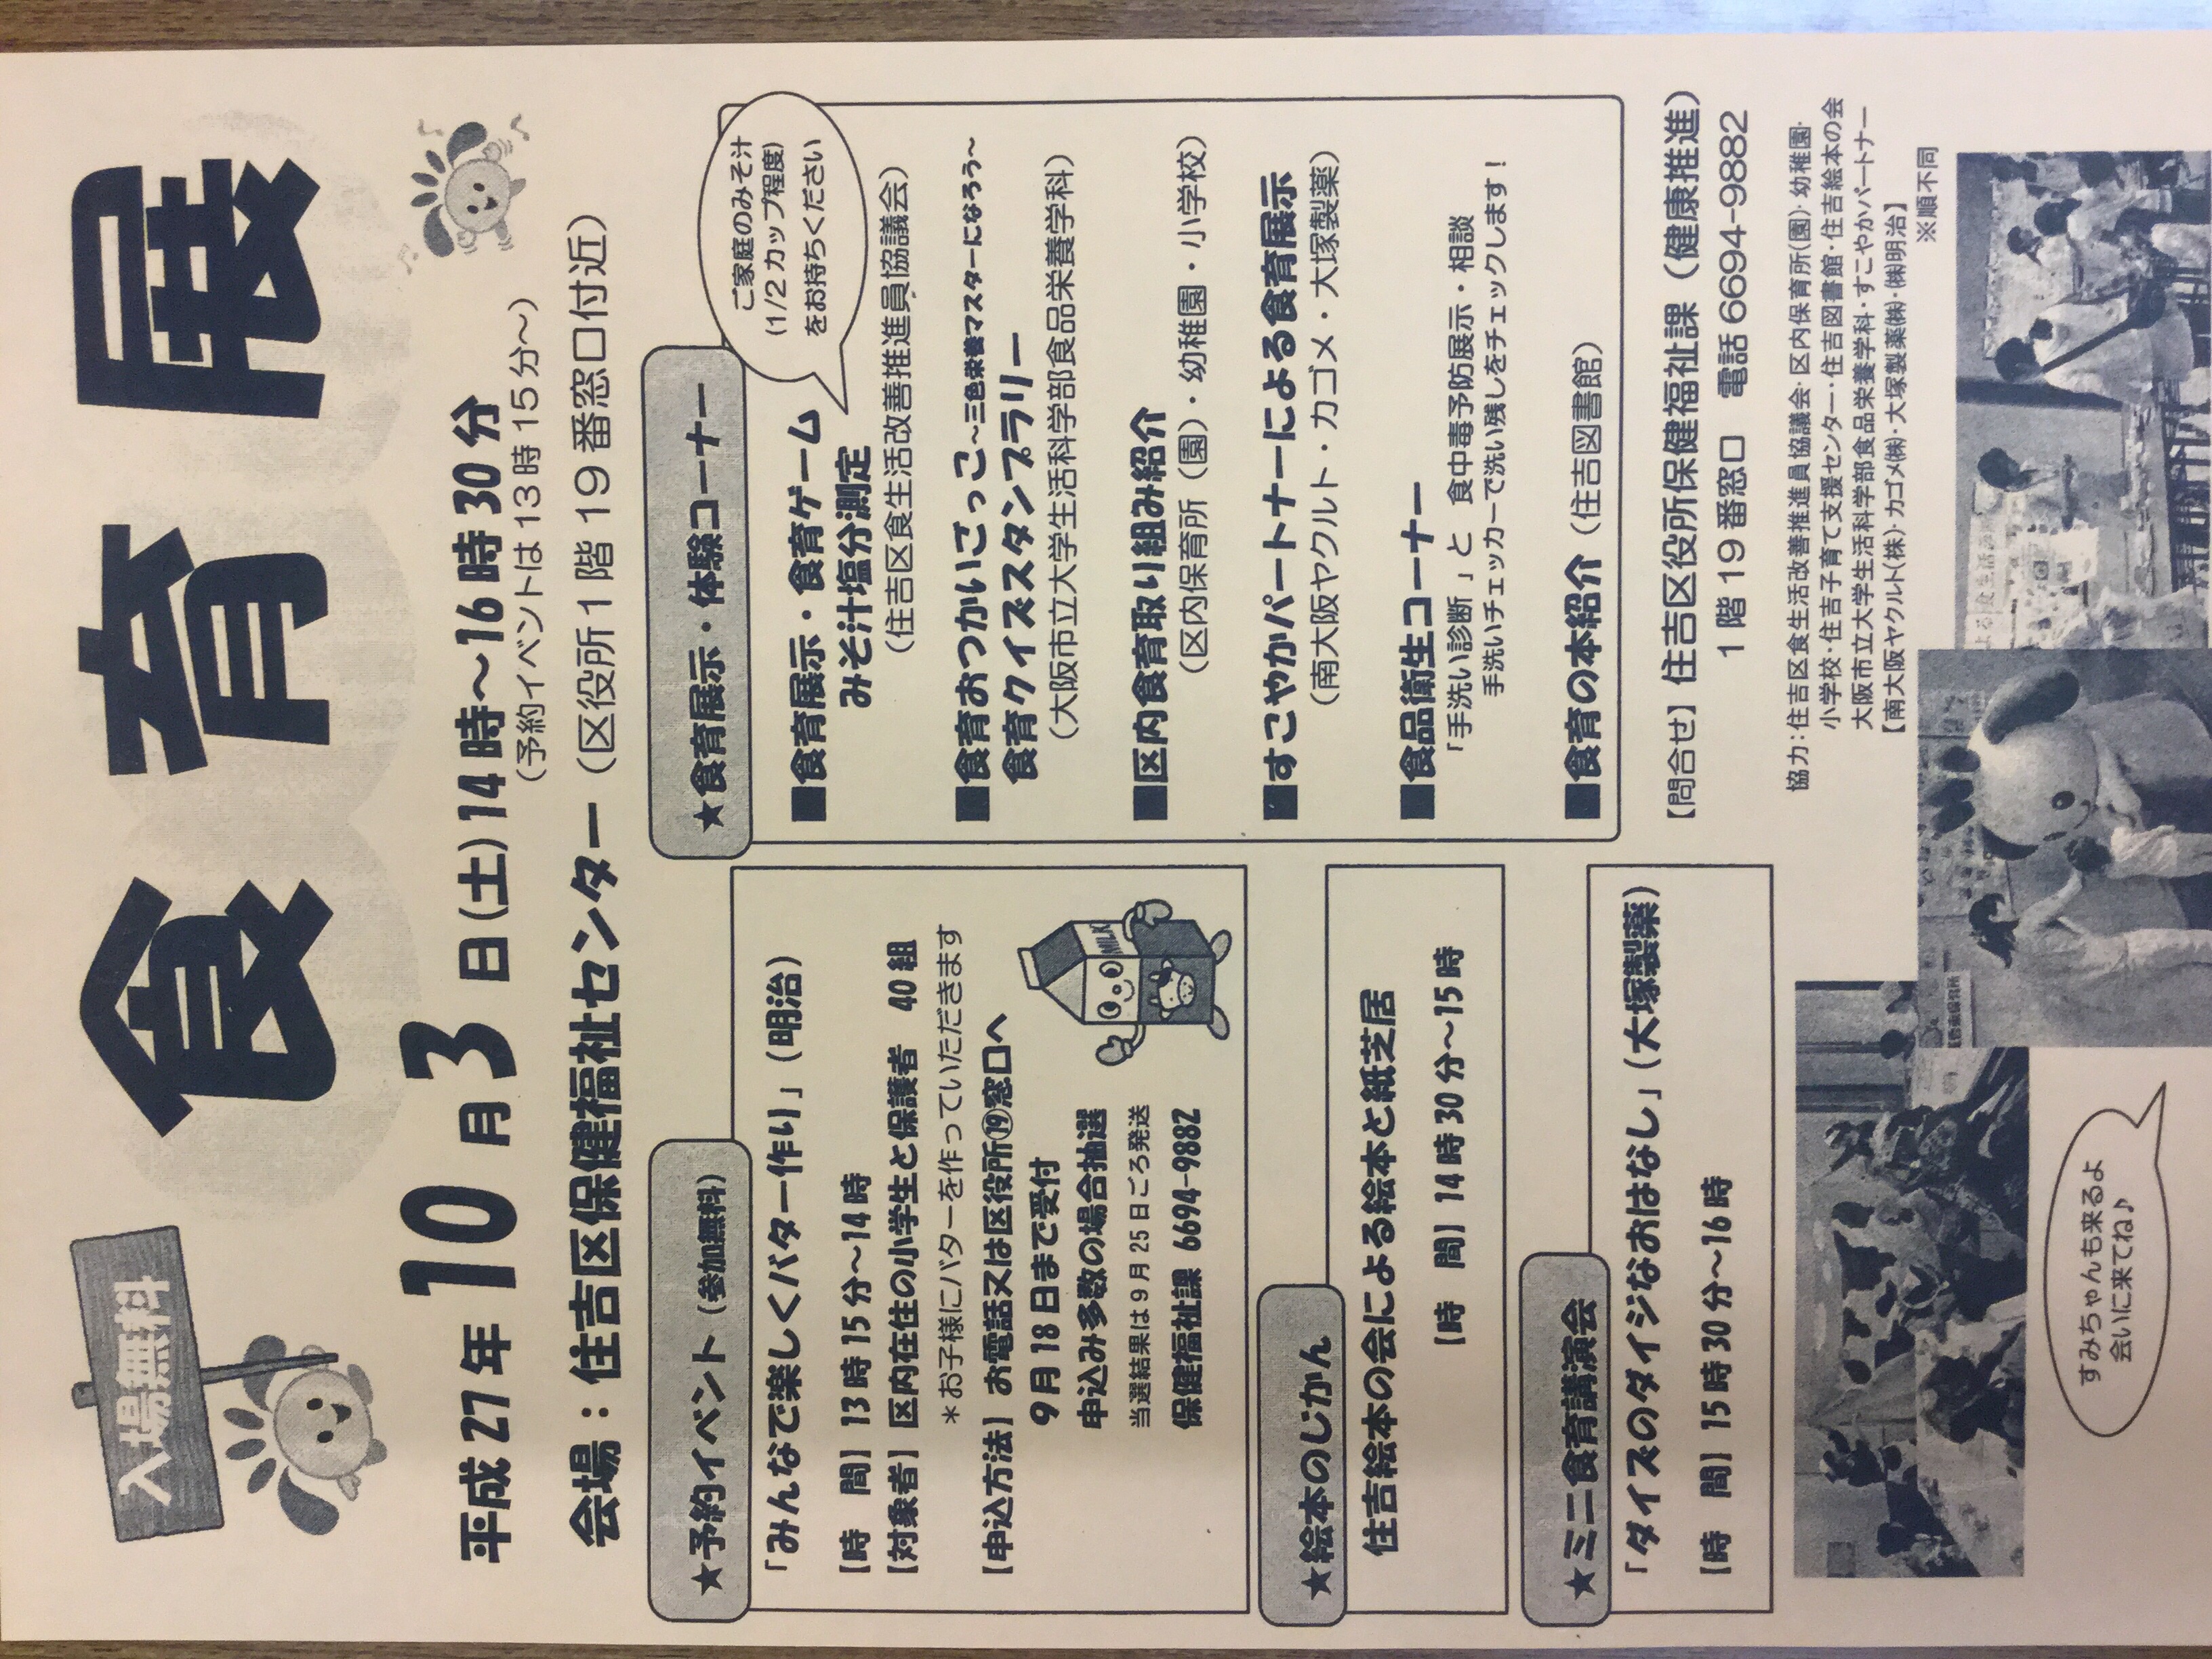 入場無料
食育展
平成27年 10月3日(土)14時～16時30分
(予約イベントは13時15分～)
会場：住吉区保健福祉センター（区役所1階19番窓口付近）
★予約イベント(参加無料)
「みんなで楽しくバター作り」(明治)
【時　間】13時15分～14時
【対象者】区内在住の小学生と保護者　40組
＊お子様にバターを作っていただきます
【申込方法】お電話又は区役所⑲窓口へ
9月18日まで受付
申込み多数の場合抽選
当選結果は9月25日ごろ発送
保健福祉課 6694-9882
MILK
★絵本のじかん
住吉絵本の会による絵本と紙芝居
【時　間】14時30分～15時
★ミニ食育講演会
「ダイズのダイジなおはなし」(大塚製薬)
【時　間】15時30分～16時
★食育展示・体験コーナー
ご家庭のみそ汁
(1/2カップ程度)
をお持ちください
■食育展示・食育ゲーム
みそ汁塩分測定
（住吉区食生活改善推進員協議会）
■食育おつかいごっこ～三色栄養マスターになろう～
食育クイズスタンプラリー
（大阪市立大学生活科学部食品栄養学科）
■区内食育取り組み紹介
（区内保育所（園）・幼稚園・小学校）
■すこやかパートナーによる食育展示
（南大阪ヤクルト・カゴメ・大塚製薬）
■食品衛生コーナー
「手洗い診断」と　食中毒予防展示・相談
手洗いチェッカーで洗い残しをチェックします！
■食育の本紹介（住吉図書館）
【問合せ】住吉区役所保健福祉課（健康推進）
1階19番窓口　電話6694-9882
協力：住吉区食生活改善推進員協議会・区内保育所(園)・幼稚園・
小学校・住吉子育て支援センター・住吉図書館・住吉絵本の会
大阪市立大学生活科学部食品栄養学科・すこやかパートナー
【南大阪ヤクルト(株)・カゴメ㈱・大塚製薬㈱・㈱明治】
※順不同
すみちゃんも来るよ
会いに来てね♪